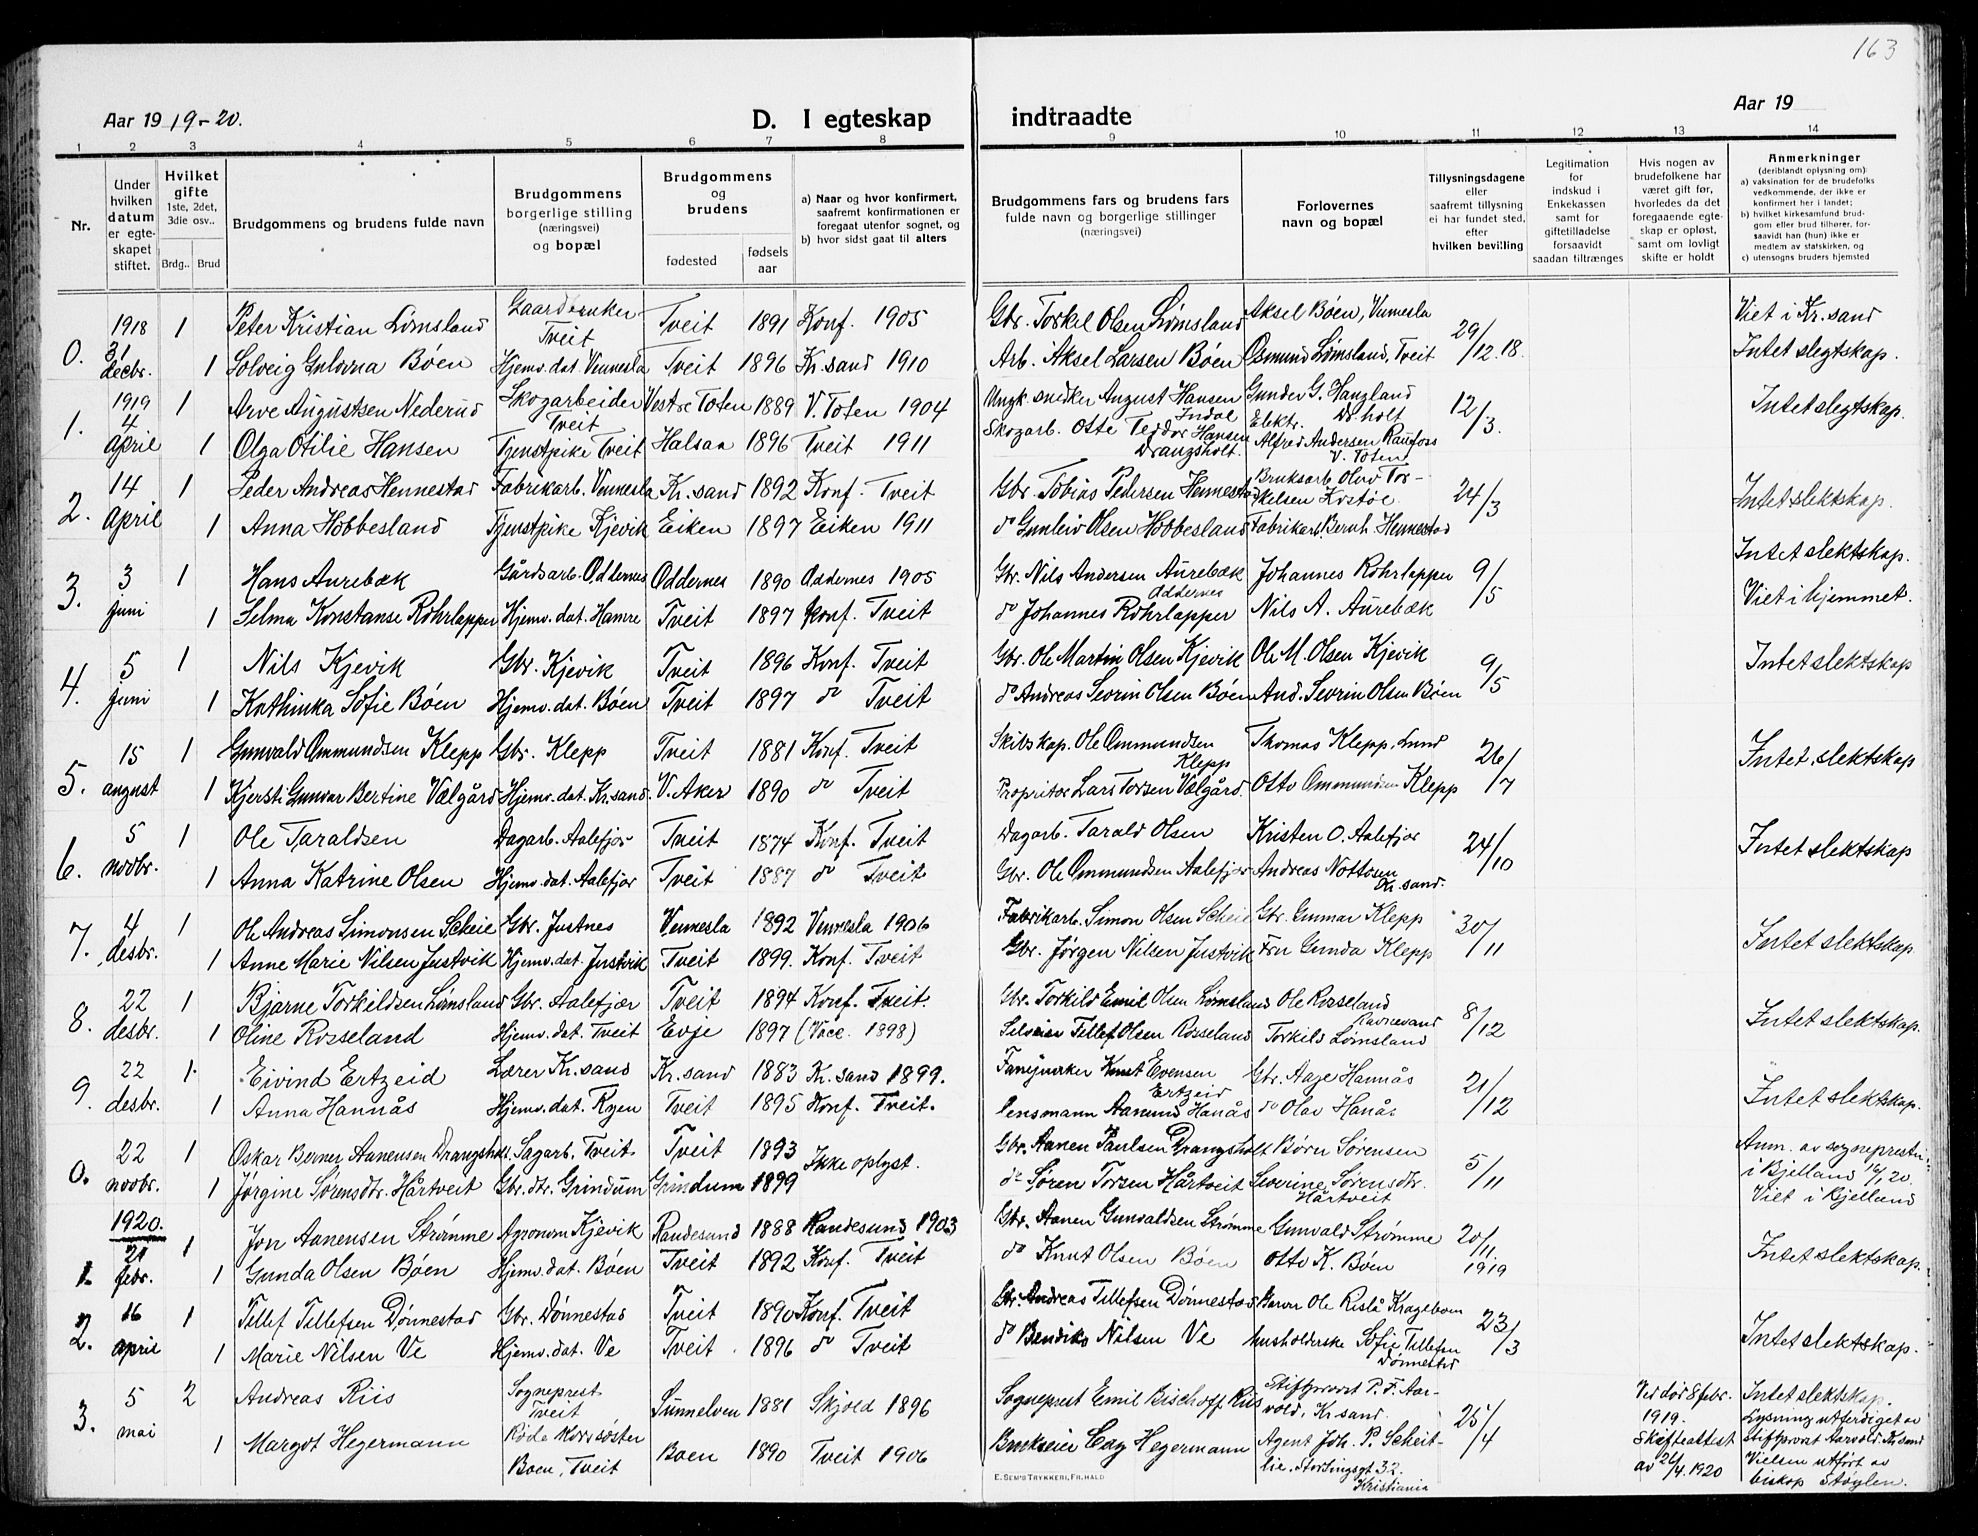 163
Aar 19 19-20.
D. I egteskap
indtraadte
Aar 19
1 2 3 4 5 6 7 8 9 10 11 12 13 14
Nr.
Under hvilken datum er egteskapet stiftet.
Hvilket gifte 1ste, 2det, 3die osv..
Brdg.. Brud
Brudgommens og brudens fulde navn
Brudgommens borgerlige stilling (næringsvei) og bopæl
Brudgommens og brudens
fødested
fødsels aar
a) Naar og hvor konfirmert, saafremt konfirmationen er foregaat utenfor sognet, og
b) hvor sidst gaat til alters
Brudgommens fars og brudens fars fulde navn og borgerlige stillinger (næringsvei)
Forlovernes navn og bopæl
Tillysningsdagene eller saafremt tillysning ei har fundet sted, efter hvilken bevilling
Legitimation for indskud i Enkekassen samt for giftetilladelse forsaavidt saadan tiltrænges
Hvis nogen av brudefolkene har været gift før, hvorledes da det foregaaende egteskap er opløst, samt om lovligt skifte er holdt
Anmerkninger (deriblandt oplysning om):
a) vaksination for de brudefolks vedkommende, der ikke er konfirmert her i landet;
b) hvilket kirkesamfund brudgom eller brud tilhører, forsaavidt han (hun) ikke er medlem av statskirken, og
c) utensogns bruders hjemsted
0. 1918 31 decbr. 1 Peter Kristian Lømsland Gaardbruker Tveit Tveit 1891 Konf. 1905 Gbr. Torkel Olsen Lømsland Aksel Bøen, Vennesla 29/12.18. Viet i Kr.sand
1 Solveig Gulovna Bøen Hjemv. dat. Vennesla Tveit 1896 Kr.sand 1910 Arb. Aksel Larsen Bøen Osmund Lømsland, Tveit Intet slegtskap.
1. 1919 4 april 1 Arve Augustsen Nederud Skogarbeider Tveit Vestre Toten 1889 V. Toten 1904 snedker August Hansen Indal Gunder G. Haugland 12/3. Intet slegtskap.
1 Olga Otilie Hansen Tjenstpike Tveit Halsaa 1896 Tveit 1911 Skogarb. Otte Teodor Hansen Drangsholt. Elektr. Alfred Andersen Raufoss V. Toten
2. 14 april 1 Peder Andreas Hennestad Fabrikarb. Vennesla Kr.sand 1892 Konf. Tveit Gbr. Tobias Pedersen Hennestad Bruksarb. Olav Torkelsen Kostøe. 24/3 Intet slektskap.
1 Anna Hobbesland Tjenstpike Kjevik Eiken 1897 Eiken 1911 do Gunleiv Olsen Hobbesland Fabrikarb. Bernh. Hennestad
3. 3 juni 1 Hans Aurebæk Gårdsarb. Oddernes Oddernes 1890 Oddernes 1905 Gbr. Nils Andersen Aurebæk Oddernes Johannes Rohrlapper 9/5 Intet slektskap.
1 Selma Konstanse Rohrlapper Hjemv. dat. Hamre Tveit 1897 Konf. Tveit do Johannes Rohrlapper Nils A. Aurebæk Viet i hjemmet.
4. 5 juni 1 Nils Kjevik Gbr. Kjevik Tveit 1896 Konf. Tveit Gbr. Ole Martin Olsen Kjevik Ole M. Olsen Kjevik 9/5 Intet slektskap
1 Kathinka Sofie Bøen Hjemv. dat. Bøen Tveit 1897 do Tveit do Andreas Sevrin Olsen Bøen And. Sevrin Olsen Bøen
5. 15 august 1 Gunvald Ommundsen Klepp Gbr. Klepp Tveit 1881 Konf. Tveit Skibskap. Ole Ommundsen Klepp Thomas Klepp, Lund 26/7 Intet slektskap
1 Kjersti Gunvar Bertine Vælgård Hjemv. dat. Kr.sand. V. Aker 1890 do Tveit Proprietær Lars Torsen Vælgård. Otto Ommundsen Klepp
6. 5 novbr. 1 Ole Taraldsen Dagarb. Aalefjær Tveit 1874 Konf. Tveit Dagarb. Tarald Olsen Kristen O. Aalefjær 24/10 Intet slektskap
1 Anna Katrine Olsen Hjemv. dat. Aalefjær Tveit 1887 do Tveit Gbr. Ole Ommundsen Aalefjær Andreas Nottosen Kr.sand.
7. 4 desbr. 1 Ole Andreas Simonsen Scheie Gbr. Justnes Vennesla 1892 Vennesla 1906 Fabrikarb. Simon Olsen Scheie Gbr. Gunnar Klepp 30/11 Intet slektskap.
1 Anne Marie Nilsen Justvik Hjemv. dat. Justvik Tveit 1899. Konf. Tveit Gbr. Jørgen Nilsen Justvik Fru Gunda Klepp
8. 22 desbr. 1 Bjarne Torkildsen Lømsland Gbr. Aalefjær Tveit 1894 Konf. Tveit. Gbr. Torkild Emil Olsen Lømsland Ole Rosseland Ravnevand 8/12 Intet slektskap.
1 Oline Rosseland Hjemv. dat. Tveit Evje 1897 (Vacc. 1898) Selveier Tellef Olsen Rosseland Torkild Lømsland
9. 22 desbr. 1 Eivind Ertzeid Lærer Kr.sand Kr.sand 1883 Kr.sand 1899. Knut Evensen Ertzeid Gbr. Aage Hannås 21/12 Intet slektskap.
1 Anna Hannås Hjemv. dat. Ryen Tveit 1895 Konf. Tveit. lensmann Aanund Hanås do Olav Hanås
0. 22 novbr. 1 Oskar Berner Aanensen Drangsholt. Sagarb. Tveit Tveit 1893 Ikke oplyst. Gbr. Aanen Paulsen Drangsholt Børn Sørensen 5/11 Anm. av sognepresten i Bjelland 14/1 20.
1 Jørgine Sørensdtr. Hårtveit Gbr. dtr. Grindum Grindum 1899 do Søren Torsen Hårtveit Severine Sørensdtr. Hårtveit Viet i Bjelland
1. 1920. 21 febr. 1 Jon Aanensen Strømme Agronom Kjevik Randesund 1888 Randesund 1903 Gbr. Aanen Gunvaldsen Strømme Gunvald Strømme 20/11. 1919 Intet slektskap.
1 Gunda Olsen Bøen Hjemv. dat. Bøen Tveit 1892 Konf. Tveit do Knut Olsen Bøen Otto K. Bøen
2. 16 april 1 Tellef Tellefsen Dønnestad Gbr. Dønnestad Tveit 1890 Konf. Tveit Gbr. Andreas Tellefsen Dønnestad Ole Rislå Kragebom 23/3 Intet slektskap.
1 Marie Nilsen Ve Hjemv. dat. Ve Tveit 1896 do Tveit do Bendiks Nilsen Ve husholderske Sofie Tellefsen Dønnestad
3. 5 mai 2 Andreas Riis Sogneprest Tveit Sunnelven 1881 Skjold 1896 Sogneprest Emil Bischoff Riis Stiftsprovst P. F. Aarvold, Kr.sand. 25/4 Ved død 8 febr. 1919. Skifteattest av 26/4. 1920 Intet slektskap.
1 Margot Hegermann Røde Korssøster Boen, Tveit Boen 1890 Tveit 1906 Brukseier Cay Hegermann Agent Joh. P. Scheitlie, Stortingsgt 32. Kristiania Lysning utferdiget av Stiftsprovst Aarvold, Kr.sand Vielsen utført av biskop Støylen.
E. SEM'S TRYKKERI, FR.HALD